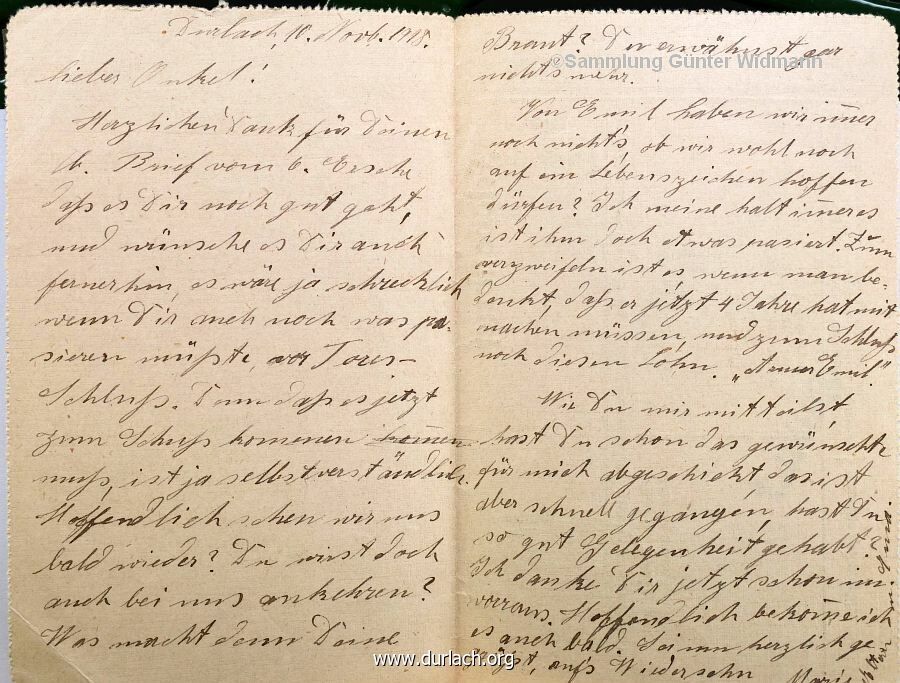 Durlach, 10. Novb. 1918.
lieber Onkel!
Herzlichen Dank für Deinen
lb. Brief vom 6. Ersehe
daß es Dir noch gut geht,
und wünsche es Dir auch
fernerhin, es wäre ja schrecklich
wenn Dir auch noch was pa-
sieren müßte, vor Tores-
Schluß. Denn daß es jetzt
zum Schuß komenen
muß, ist ja selbstverständlich.
Hoffendlich sehen wir uns
bald wieder? Du wirst doch
auch bei uns ankehren?
Was macht denn Deine
Braut? Du erwähnst gar
nichts mehr.
©Sammlung Günter Widmann
Von Emil haben wir imer
noch nichts, ob wir wohl noch
auf ein Lebenszeichen hoffen
dürfen? Ich meine halt imeres
ist ihm doch etwas pasiert. Zum
verzweifeln ist es wenn man be-
denkt, daß er jetzt 4 Jahre hat mit
machen müssen, und zum Schluß
noch diesen Lohn. „Armer Emil."
Wie Du mir mitteilst,
hast Du schon das gewünschte
für mich abgeschickt das ist
aber schnell gegangen, hast Du
so gut Gelegenheit gehabt?
Ich danke Dir jetzt schon im
vorraus. Hoffendlich bekome ich
es auch bald. Sei nun herzlich ge-
grüßt, auf's Wiedersehn
www.durlach.org